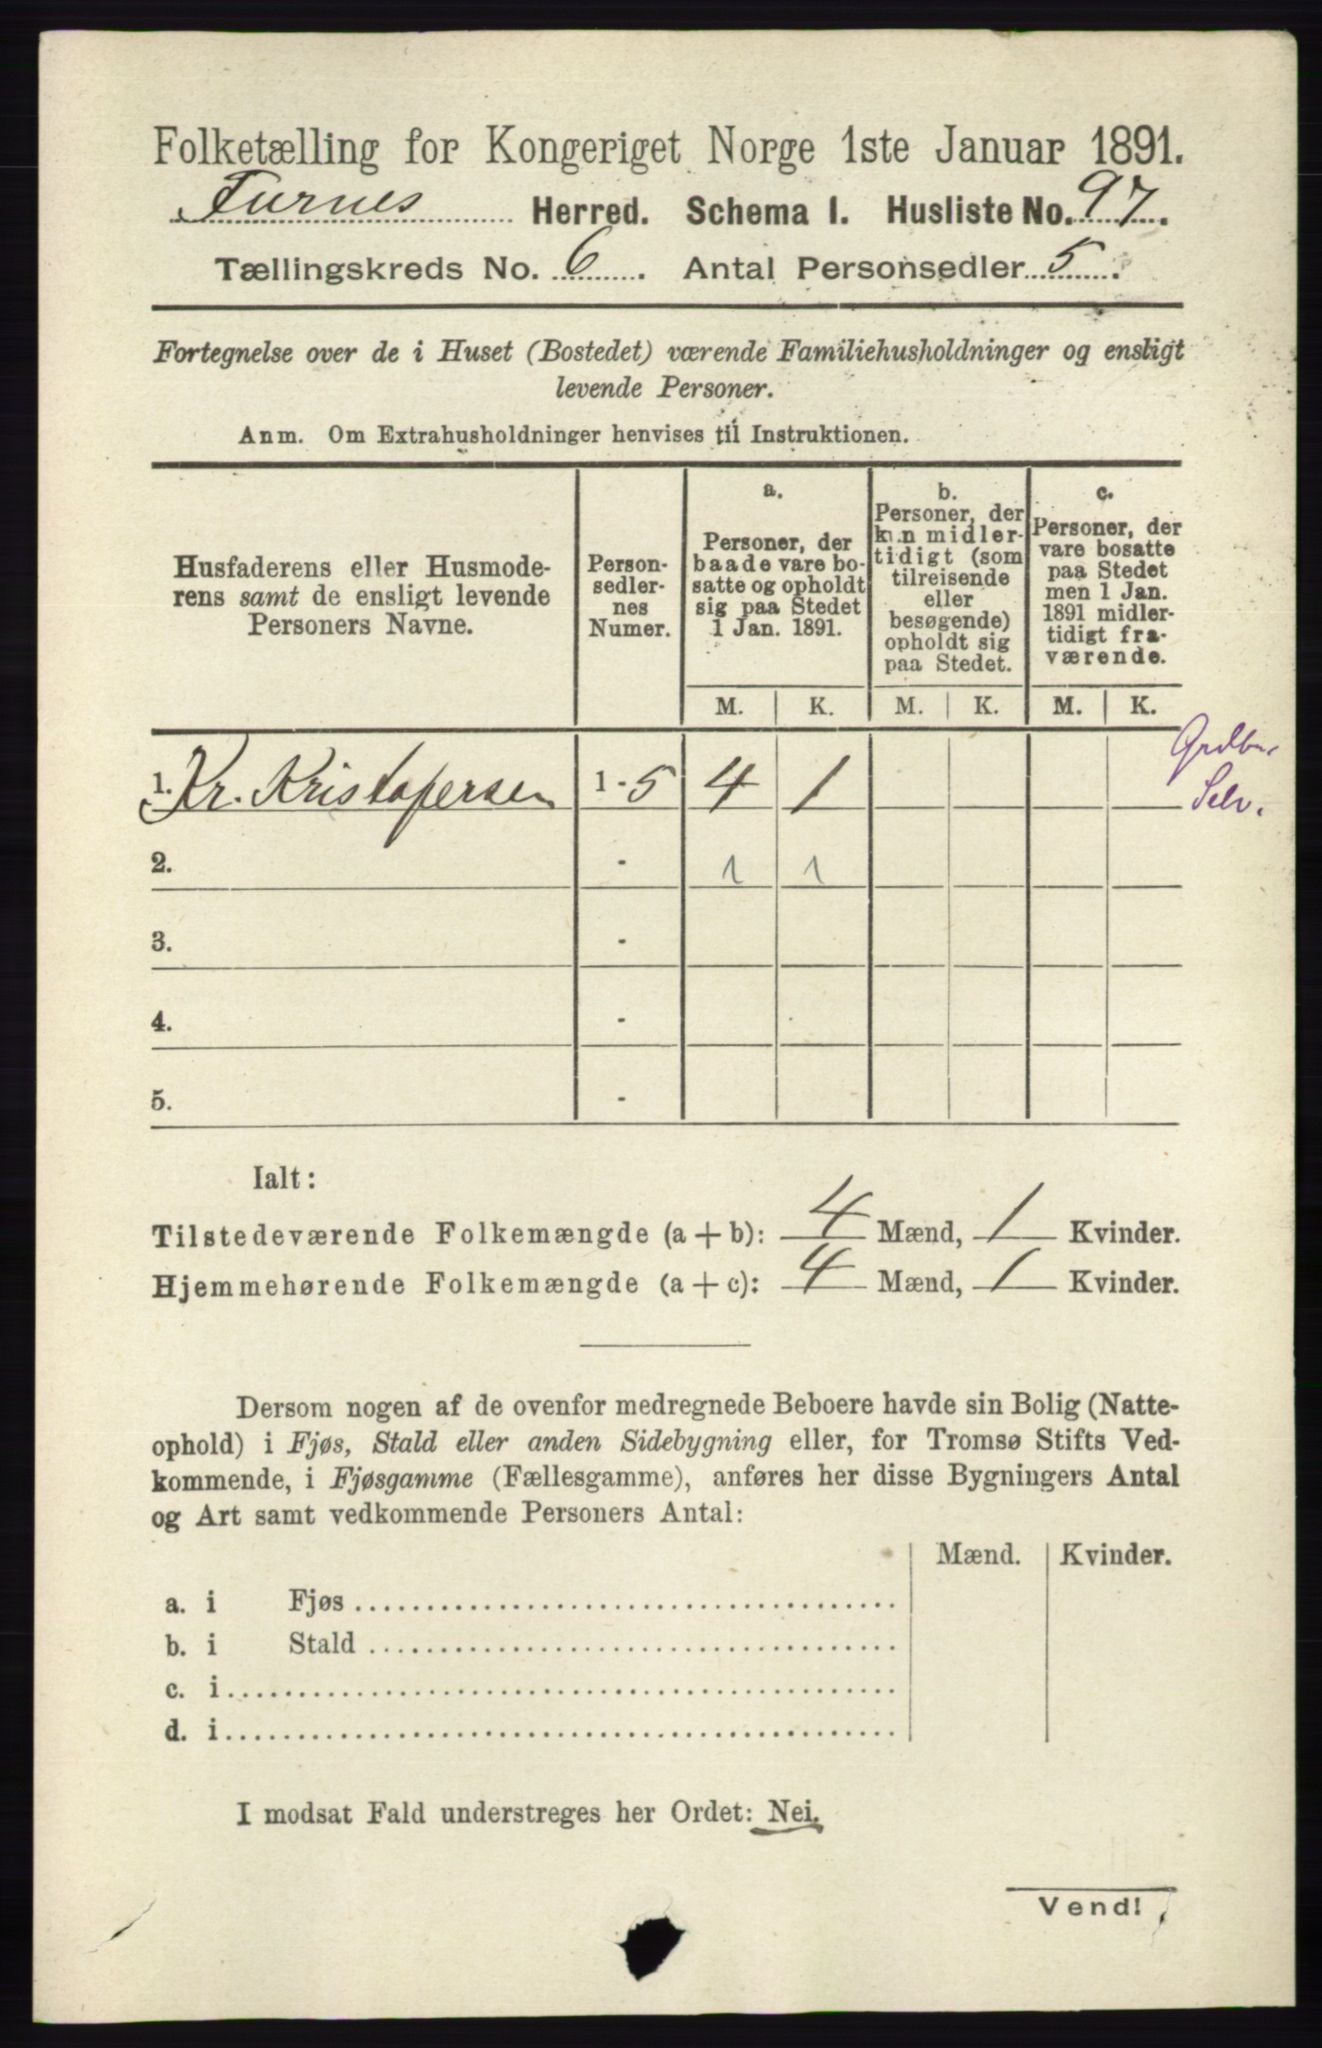 Folketælling for Kongeriget Norge 1ste Januar 1891.
Furnes Herred. Schema 1. Husliste No. 97.
Tællingskreds No. 6. Antal Personsedler 5.
Fortegnelse over de i Huset (Bostedet) værende Familiehusholdninger og ensligt
levende Personer.
Anm. Om Extrahusholdninger henvises til Instruktionen.
Husfaderens eller Husmode-
rens samt de ensligt levende
Personers Navne.
Person-
sedler-
nes
Numer.
a.
Personer, der
baade vare bo-
satte og opholdt
sig paa Stedet
1 Jan. 1891.
b.
Personer, der
kun midler-
tidigt (som
tilreisende
eller
besøgende)
opholdt sig
paa Stedet.
c.
Personer, der
vare bosatte
paa Stedet
men 1 Jan.
1891 midler-
tidigt fra-
værende.
M. K. M. K. M. K.
1. Kr. Kristofersen 1-5 4 1
Selv.
2. - 1 1
3. -
4. -
5. -
Ialt:
Tilstedeværende Folkemængde (a + b): 4 Mænd, 1 Kvinder.
Hjemmehørende Folkemængde (a + c): 4 Mænd, 1 Kvinder.
Dersom nogen af de ovenfor medregnede Beboere havde sin Bolig (Natte-
ophold) i Fjøs, Stald eller anden Sidebygning eller, for Tromsø Stifts Ved-
kommende, i Fjøsgamme (Fællesgamme), anføres her disse Bygningers Antal
og Art samt vedkommende Personers Antal:
Mænd. Kvinder.
a. i Fjøs
b. i Stald
c. i
d. i
I modsat Fald understreges her Ordet: Nei.
Vend!